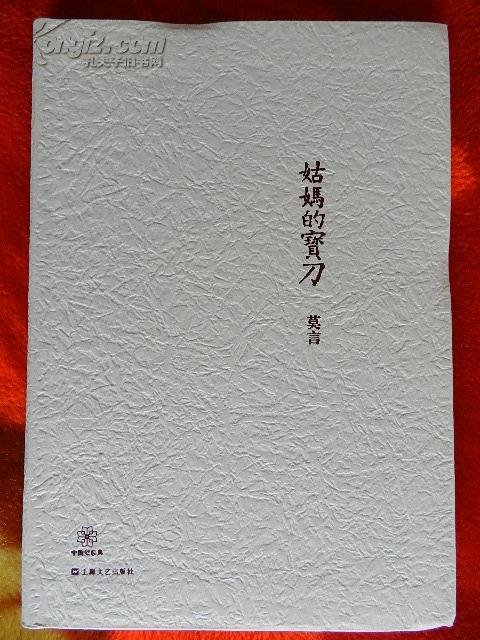 kongfz.com
孔夫子旧书网
姑媽的寳刀
莫言
上海文艺出版社